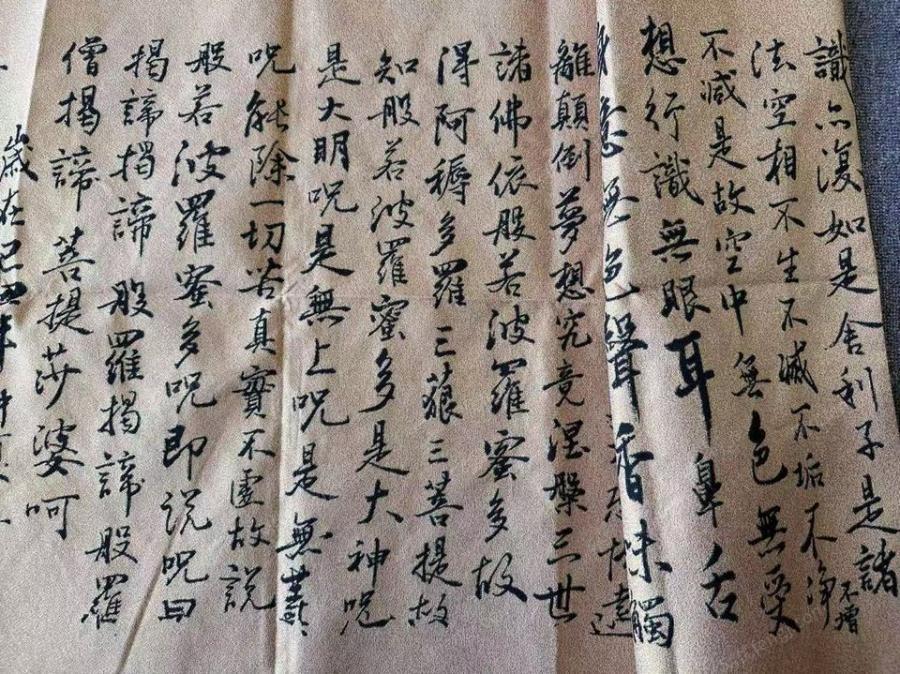 識亦復如是舍利子是諸
法空相不生不滅不垢不淨不增
不減是故空中無色無受
想行識無眼耳鼻舌
身意無色聲香味觸
遠
離顛倒夢想究竟涅槃三世
諸佛依般若波羅蜜多故
得阿耨多羅三藐三菩提故
知般若波羅蜜多是大神呪
是大明呪是無上呪是無等
呪能除一切苦真實不虛故説
般若波羅蜜多呪即説呪曰
揭諦揭諦般羅揭諦般羅
僧揭諦菩提莎婆呵
歲在己